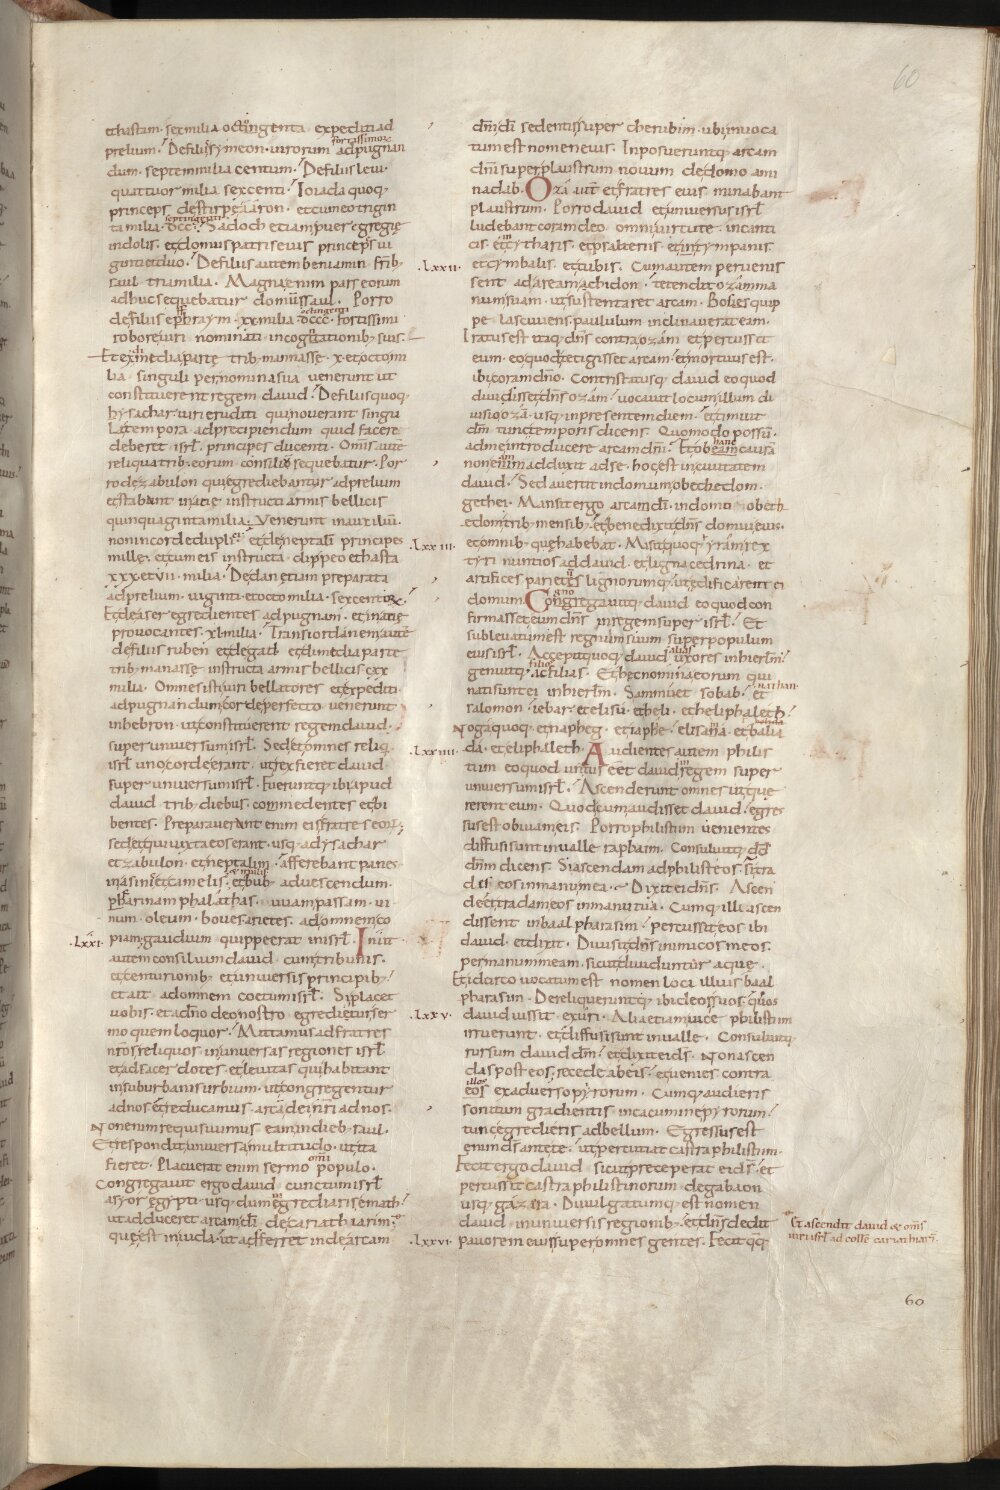 60
et hastam· sex milia octingenta expediti ad
prelium· De filiis symeon· virorum fortissimorum ad pugnan
dum· septem milia centum· De filiis levi·
quattuor milia sexcenti· Ioiada quoq·
princeps de stirpe aaron· et cum eo trigin
ta milia· dcc· septingenti Sadoch etiam puer egregie
indolis· et domus patris eius principes vi
ginti et duo· De filiis autem beniamin· frīb;
saul· tria milia· Magna enim pars eorum
adhuc sequebatur domum saul· Porro
de filiis effraym· xx milia dccc· octingenti fortissimi
robore viri nominati in cognationib; suis·
Et ex media parte trib; manasse· x· et octo mi
lia· singuli per nomina sua venerunt ut
constituerent regem david· De filiis quoq·
hysachar· viri eruditi qui noverant singu
la tempora· ad precipiendum quid facere
deberet isrł· principes ducenti· Om̄is autē
reliqua trib; eorum consilia sequebatur· Por
ro de zabulon qui egrediebantur ad prelium
et stabant in acie instructi armis bellicis
quinquaginta milia· Venerunt in auxiliū·
non in corde duplici· et de neptali principes
mille· et cum eis instructa clippeo et hasta
xxx· et vii· milia· De dan etiam preparata
ad prelium· viginti et octo milia· sexcentor·
Et de aser egredientes ad pugnam· et in acie
provocantes· xl milia· Trans iordanem autē
de filiis ruben et de gad· et dimedia parte
trib; manasse instructa armis bellicis cxx
milia· Omnes isti viri bellatores et expediti
ad pugnandum· corde perfecto venerunt
in hebron· ut constituerent regem david·
super universum isrł· Sed et omnes reliq·
isrł uno corde erant· ut rex fieret david·
super universum isrł· Fueruntq; ibi apud
david trib; diebus· commedentes et bi
bentes· Preparaverant enim eis fratres eorū·
sed et qui iuxta eos erant· usq· ad ysachar
et zabulon· et neptalim· afferebant panes·
in asinis et camelis· et mulis et bub; ad vescendum·
farinam phalathas· uvam passam· vi
num· oleum· boves arietes· ad omnem co
·lxxi· piam· gaudium quippe erat in isrł· Iniit
autem consilium david cum tribunis·
et centurionib; et universis principib;
et ait ad omnem coetum isrł· Si placet
vobis· et a dn̄o deo nostro egreditur ser
mo quem loquor· Mittamus ad fratres
nr̄os reliquos· in universas regiones isrł
et ad sacerdotes· et levitas qui habitant
in suburbanis urbium· ut congregentur
ad nos· et reducamus arcā dei nr̄i ad nos·
Non enim requisivimus eam in dieb; saul·
Et respondit universa multitudo· ut ita
fieret· Placuerat enim sermo omī populo·
Congregavit ergo david cunctum isrł
a syor egypti· usq· dum egrediaris emath·
ut adduceret arcam dī de cariathiarim·
que est in iuda· ut adferret inde arcam
dn̄i dī sedentis super cherubim· ubi invoca
tum est nomen eius· Inposueruntq; arcam
dn̄i super plaustrum novum de domo ami
nadab· Oza aut̄ et fratres eius minabant
plaustrum· Porro david et universus isrł
ludebant coram deo omni virtute· in canti
cis· et in cytharis· et psalteriis· et in tympanis·
·lxxii· et cymbalis· et tubis· Cum autem pervenis
sent ad aream achidon· tetendit oza mma
num suam· ut sustentaret arcam· Bos eius quip
pe lasciviens· paululum inclinaverat eam·
Iratus est itaq; dn̄s contra ozam et percussit
eum· eo quod tetigisset arcam· et mortuus est·
ibi coram dn̄o· Contristatusq; david eo quod
divisisset dn̄s ozam· vocavit locum illum di
visio oza· usq· in presentem diem· et timuit
dm̄ tunc temporis dicens· Quomodo possū·
ad me introducere arcam dn̄i· Et ob hanc eam causā
non eam adduxit ad se· hoc est in civitatem
david· Sed avertit in domum obethedom·
gethei· Mansit ergo arcam dī· in domū obeth
edom· trib; mensib; et benedixit dn̄s domui eius·
·lxxiii· et omnib; que habebat· Misit quoq· yram rex
tyri nuntios ad david· et ligna cedrina· et
artifices parietū lignorumq; ut edificarent ei
domum· Cognovit congregavitq; david eo quod con
firmasset eum dn̄s in regem super isrł· Et
sublevatum est regnum suum super populum
eius isrł· Accepit quoq; david alias uxores in hierłm·
genuitq; filios ac filias· Et hec nomina eorum qui
nati sunt ei in hierłm· Sammuet· sobab· et nathan·
salomon· iebar· et elisu· et heli· et heliphaleth·
Noga quoq· et napheg· et iaphe· elisama· et balia
·lxxiiii· da· et eliphaleth· Audientes autem philis
tiim eo quod unctus eēt david in regem super
universum isrł· Ascenderunt omnes ut que
rerent eum· Quod cum audisset david· egres
sus est obviam eis· Porro philistiim venientes
diffusi sunt in valle raphaim· Consuluitq; dd̄
dn̄m dicens· Si ascendam ad philisteos· si tra
dis eos in manu mea· Dixit ei dn̄s· Ascen
de et tradam eos in manu tua· Cumq; illi ascen
dissent in baal pharasim· percussit eos ibi
david· et dixit· Divisit dn̄s inimicos meos·
per manum meam· sicut dividuntur aque·
Et idcirco vocatum est nomen loci illius baal
pharasim· Dereliqueruntq; ibi deos suos· quos
·lxxv· david iussit exuri· Alia etiam vice philistiim
irruerunt· et diffusi sunt in valle· Consuluitq;
rursum david dm̄· et dixit ei ds̄· Non ascen
das post eos· recede ab eis· et venies contra
illos eos ex adverso pyrorum· Cumq; audieris
sonitum gradientis in cacumine pyrorum·
tunc egredieris ad bellum· Egressus est
enim ds̄ ante te· ut percutiat castra philistiim·
Fecit ergo david sicut preceperat ei ds̄· et
percussit castra philistinorum de gabaon
usq; gazara· Divulgatumq; est nomen
david in universis regionib; et dn̄s dedit
·lxxvi· pavorem eius super omnes gentes· Fecit qq̄
Et ascendit david & om̄s
viri isrł ad collē cariathiari·
60